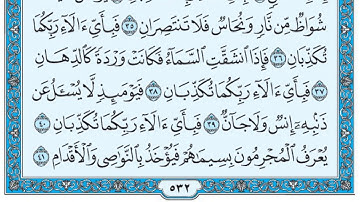 شُوَاظٌ مِّن نَّارٍ وَنُحَاسٌ فَلَا تَنتَصِرَانِ ٣٥ فَبِأَيِّ ءَالَآءِ رَبِّكُمَا
تُكَذِّبَانِ ٣٦ فَإِذَا ٱنشَقَّتِ ٱلسَّمَآءُ فَكَانَتْ وَرْدَةً كَٱلدِّهَانِ
٣٧ فَبِأَيِّ ءَالَآءِ رَبِّكُمَا تُكَذِّبَانِ ٣٨ فَيَوْمَئِذٍ لَّا يُسْـَٔلُ عَن
ذَنۢبِهِۦٓ إِنسٌ وَلَا جَآنٌّ ٣٩ فَبِأَيِّ ءَالَآءِ رَبِّكُمَا تُكَذِّبَانِ ٤٠
يُعْرَفُ ٱلْمُجْرِمُونَ بِسِيمَٰهُمْ فَيُؤْخَذُ بِٱلنَّوَٰصِى وَٱلْأَقْدَامِ ٤١
٥٣٢